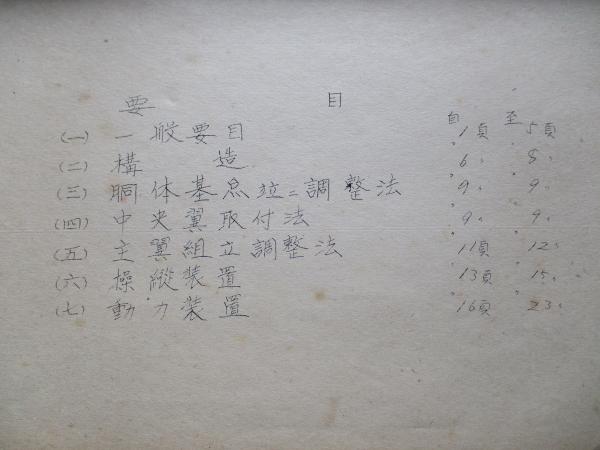 要 目
自 至
(一) 一般要目 1頁 〃 5頁
(二) 構 造 〃 6〃 〃 8〃
(三) 胴体基点竝ニ調整法 〃 9〃 〃 9〃
(四) 中央翼取付法 〃 9〃 〃 9〃
(五) 主翼組立調整法 〃 11頁 〃 12〃
(六) 操縦装置 〃 13頁 〃 15〃
(七) 動力装置 〃 16頁 〃 23〃